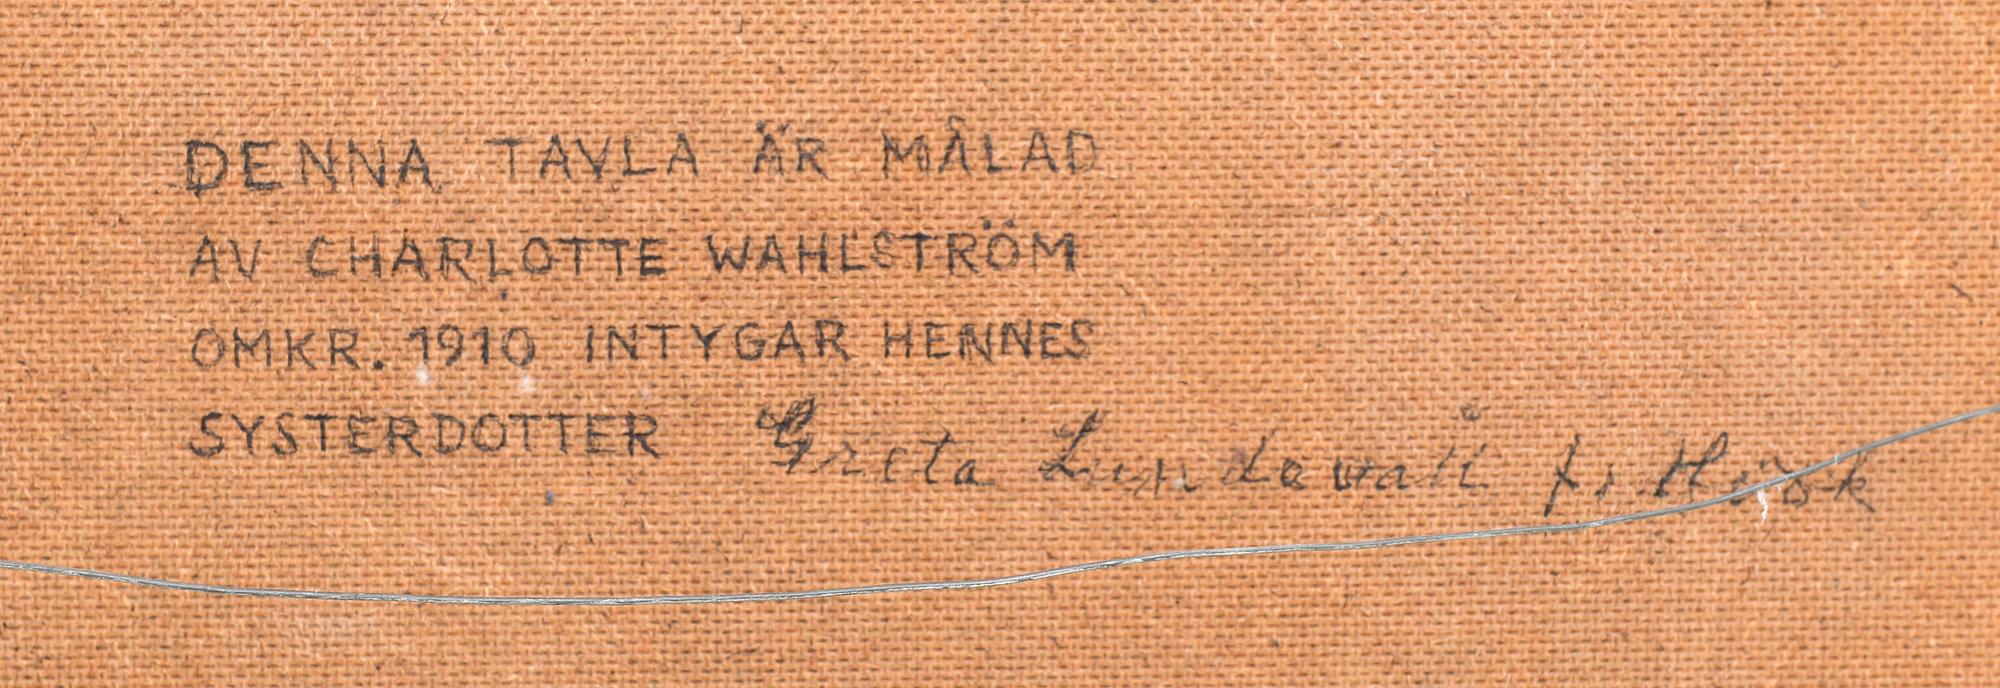 DENNA TAVLA ÄR MÅLAD
AV CHARLOTTE WAHLSTRÖM
OMKR. 1910 INTYGAR HENNES
SYSTERDOTTER Greta Lundewall f. Höök